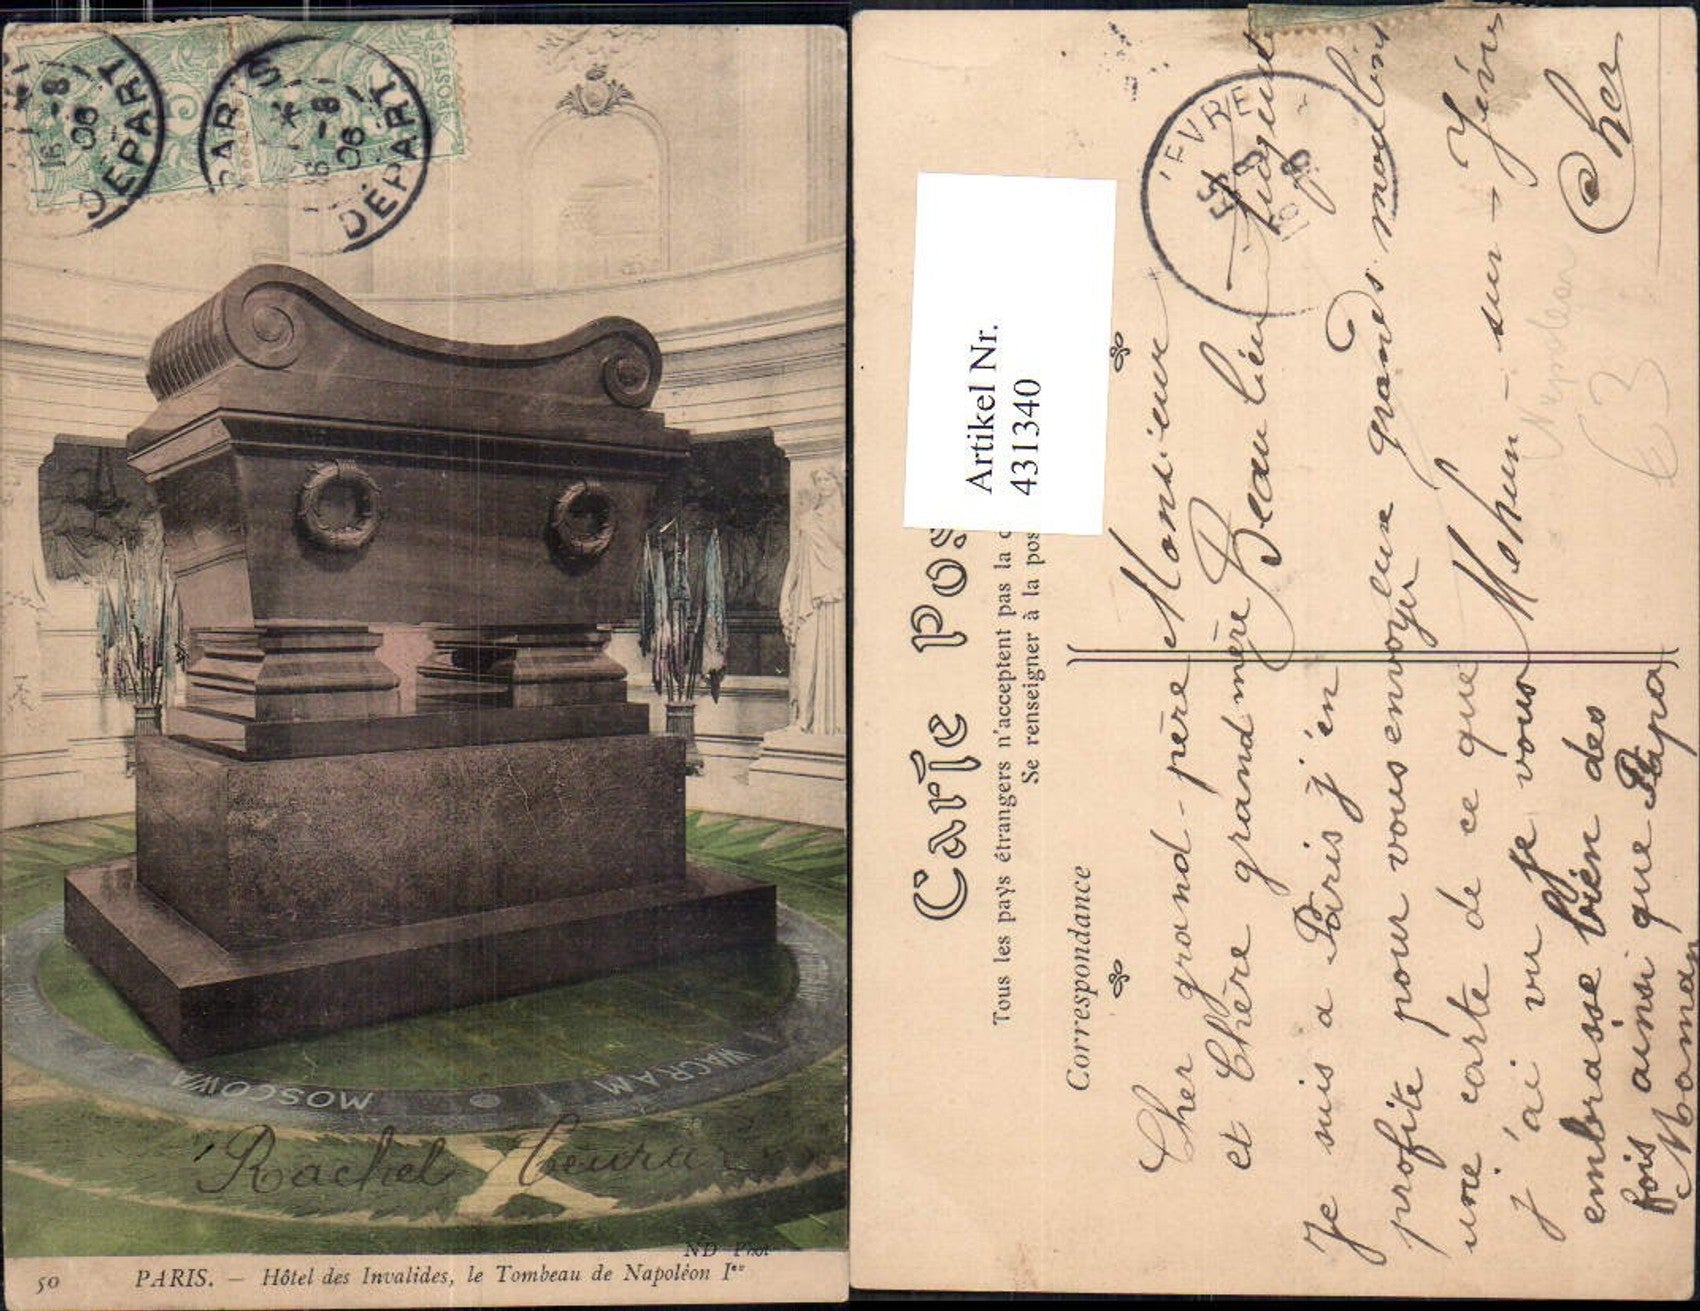 PARIS
16 -8
08
DÉPART
PARIS
16 -8
08
DÉPART
POSTES
MOSCOWA
WAGRAM
Rachel
ND Phot
50 PARIS. — Hôtel des Invalides, le Tombeau de Napoléon Ier
Carte Pos
Tous les pays étrangers n'acceptent pas la c
Se renseigner à la pos
Correspondance
Artikel Nr.
431340
Cher grand-père
et Chère grand mère
Je suis a Paris j'en
profite pour vous envoyer
une carte de ce que
j'ai vu je vous
embrasse bien des
fois ainsi que Papa
Maman
Monsieur
Beau lieu
aux grands moulins
Mehun-sur-Yèvre
Cher
63